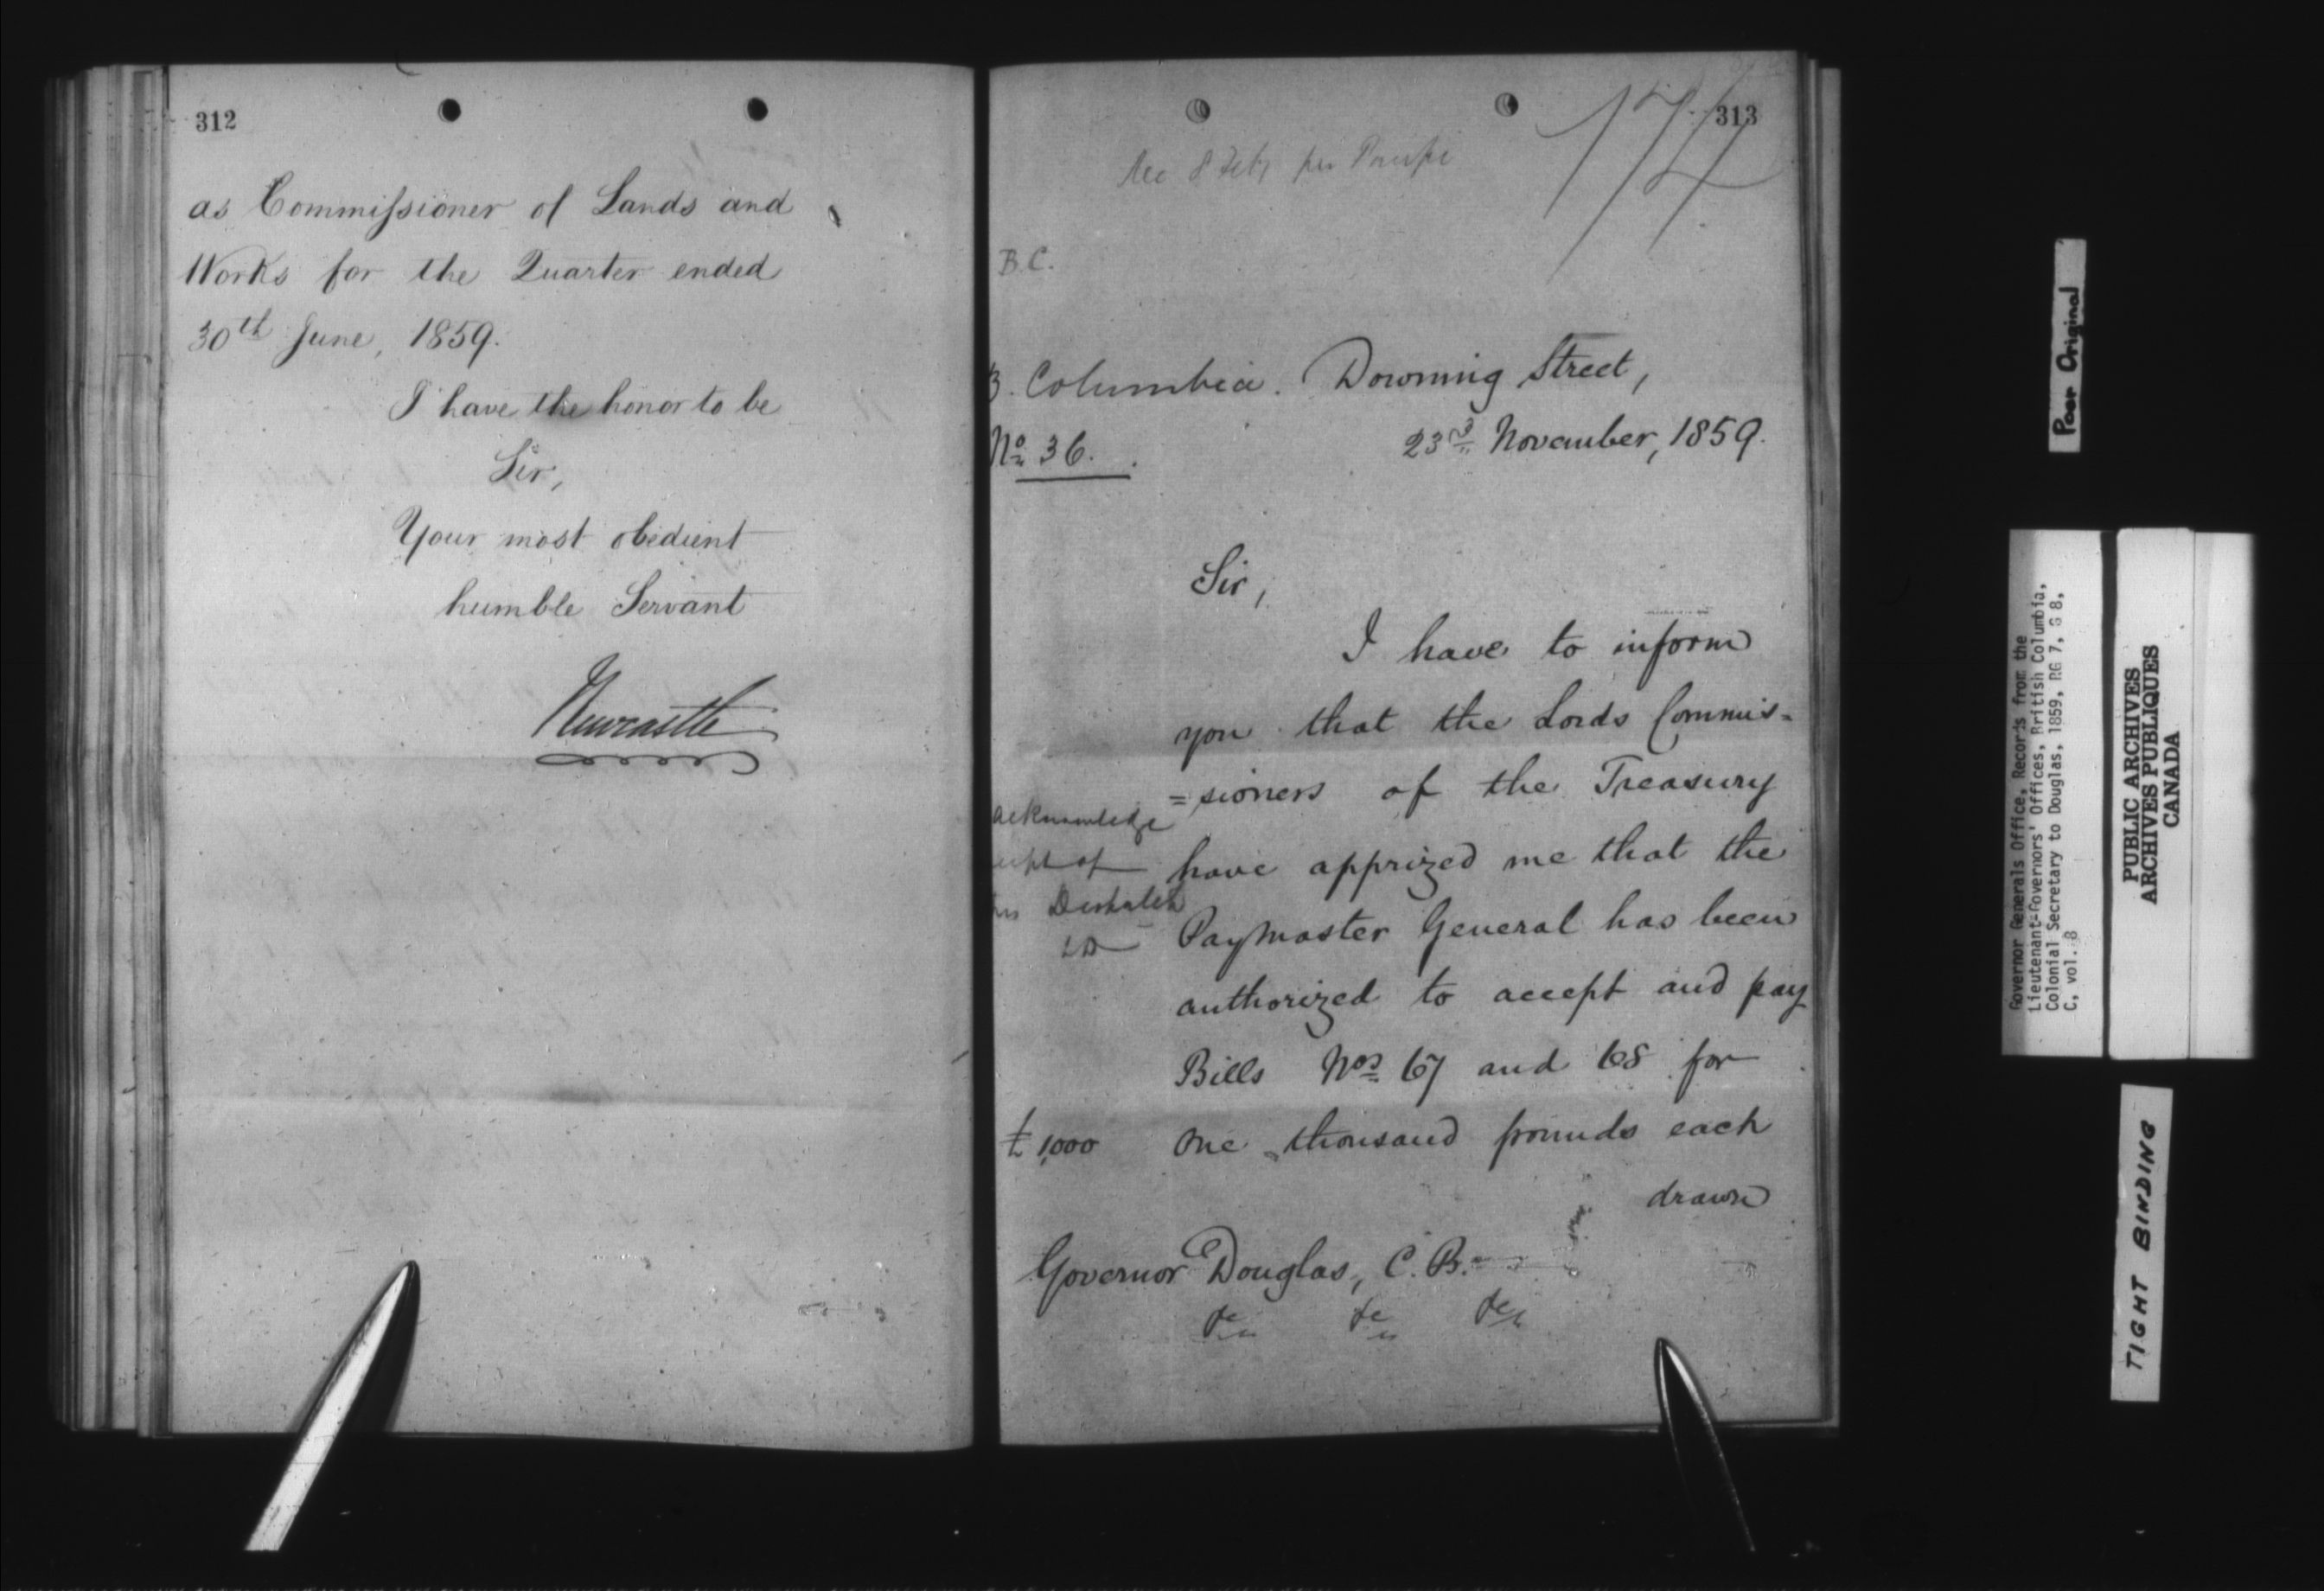 312
as Commissioner of Lands and
Works for the Quarter ended
30th June, 1859.
I have the honor to be
Sir,
Your most obedient
humble Servant
Newcastle
313
Rec 8 Feby per
B.C.
B. Columbia. Downing Street,
No 36. 23rd November, 1859.
Sir,
I have to inform
you that the Lords Commis-
=sioners of the Treasury
have apprized me that the
Paymaster General has been
authorized to accept and pay
Bills Nos 67 and 68 for
£1,000 One thousand pounds each
drawn
acknowledge
eipt of
Despatch
Governor Douglas, C.B.
&c &c &c
Poor Original
Governor Generals Office, Records from the
Lieutenant-Governors' Offices, British Columbia,
Colonial Secretary to Douglas, 1859, RG 7, G 8,
C, vol. 8
PUBLIC ARCHIVES
ARCHIVES PUBLIQUES
CANADA
TIGHT BINDING